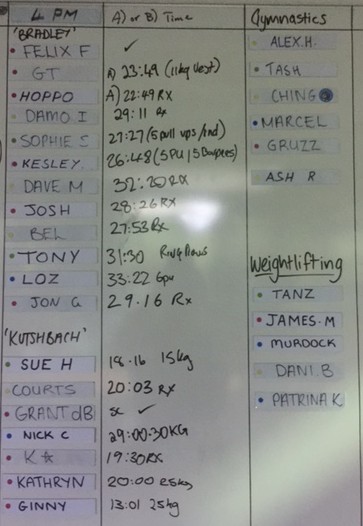 4 PM A) or B) Time
'BRADLEY'
FELIX F ✓
GT A) 23:49 (11kg Vest)
HOPPO A) 22:49 RX
DAMO I 29:11 Rx
SOPHIE S 27:27 (5 pull ups /rnd)
KESLEY. 26:48 (5 PU / 5 Burpees)
DAVE M 32:20 RX
JOSH 28:26 RX
BEL 27:53 Rx
TONY 31:30 Ring Rows
LOZ 33:22 6pu
JON G 29.16 Rx
'KUTSHBACH'
SUE H 18.16 15kg
COURTS 20:03 Rx
GRANT dB sc ✓
NICK C 29:00.30KG
K☆ 19:30 RX
KATHRYN 20:00 25kg
GINNY 13:01 25kg
Gymnastics
ALEX.H.
TASH
CHING
MARCEL
GRUZZ
ASH R
Weightlifting
TANZ
JAMES.M
MURDOCK
DANI.B
PATRINA K